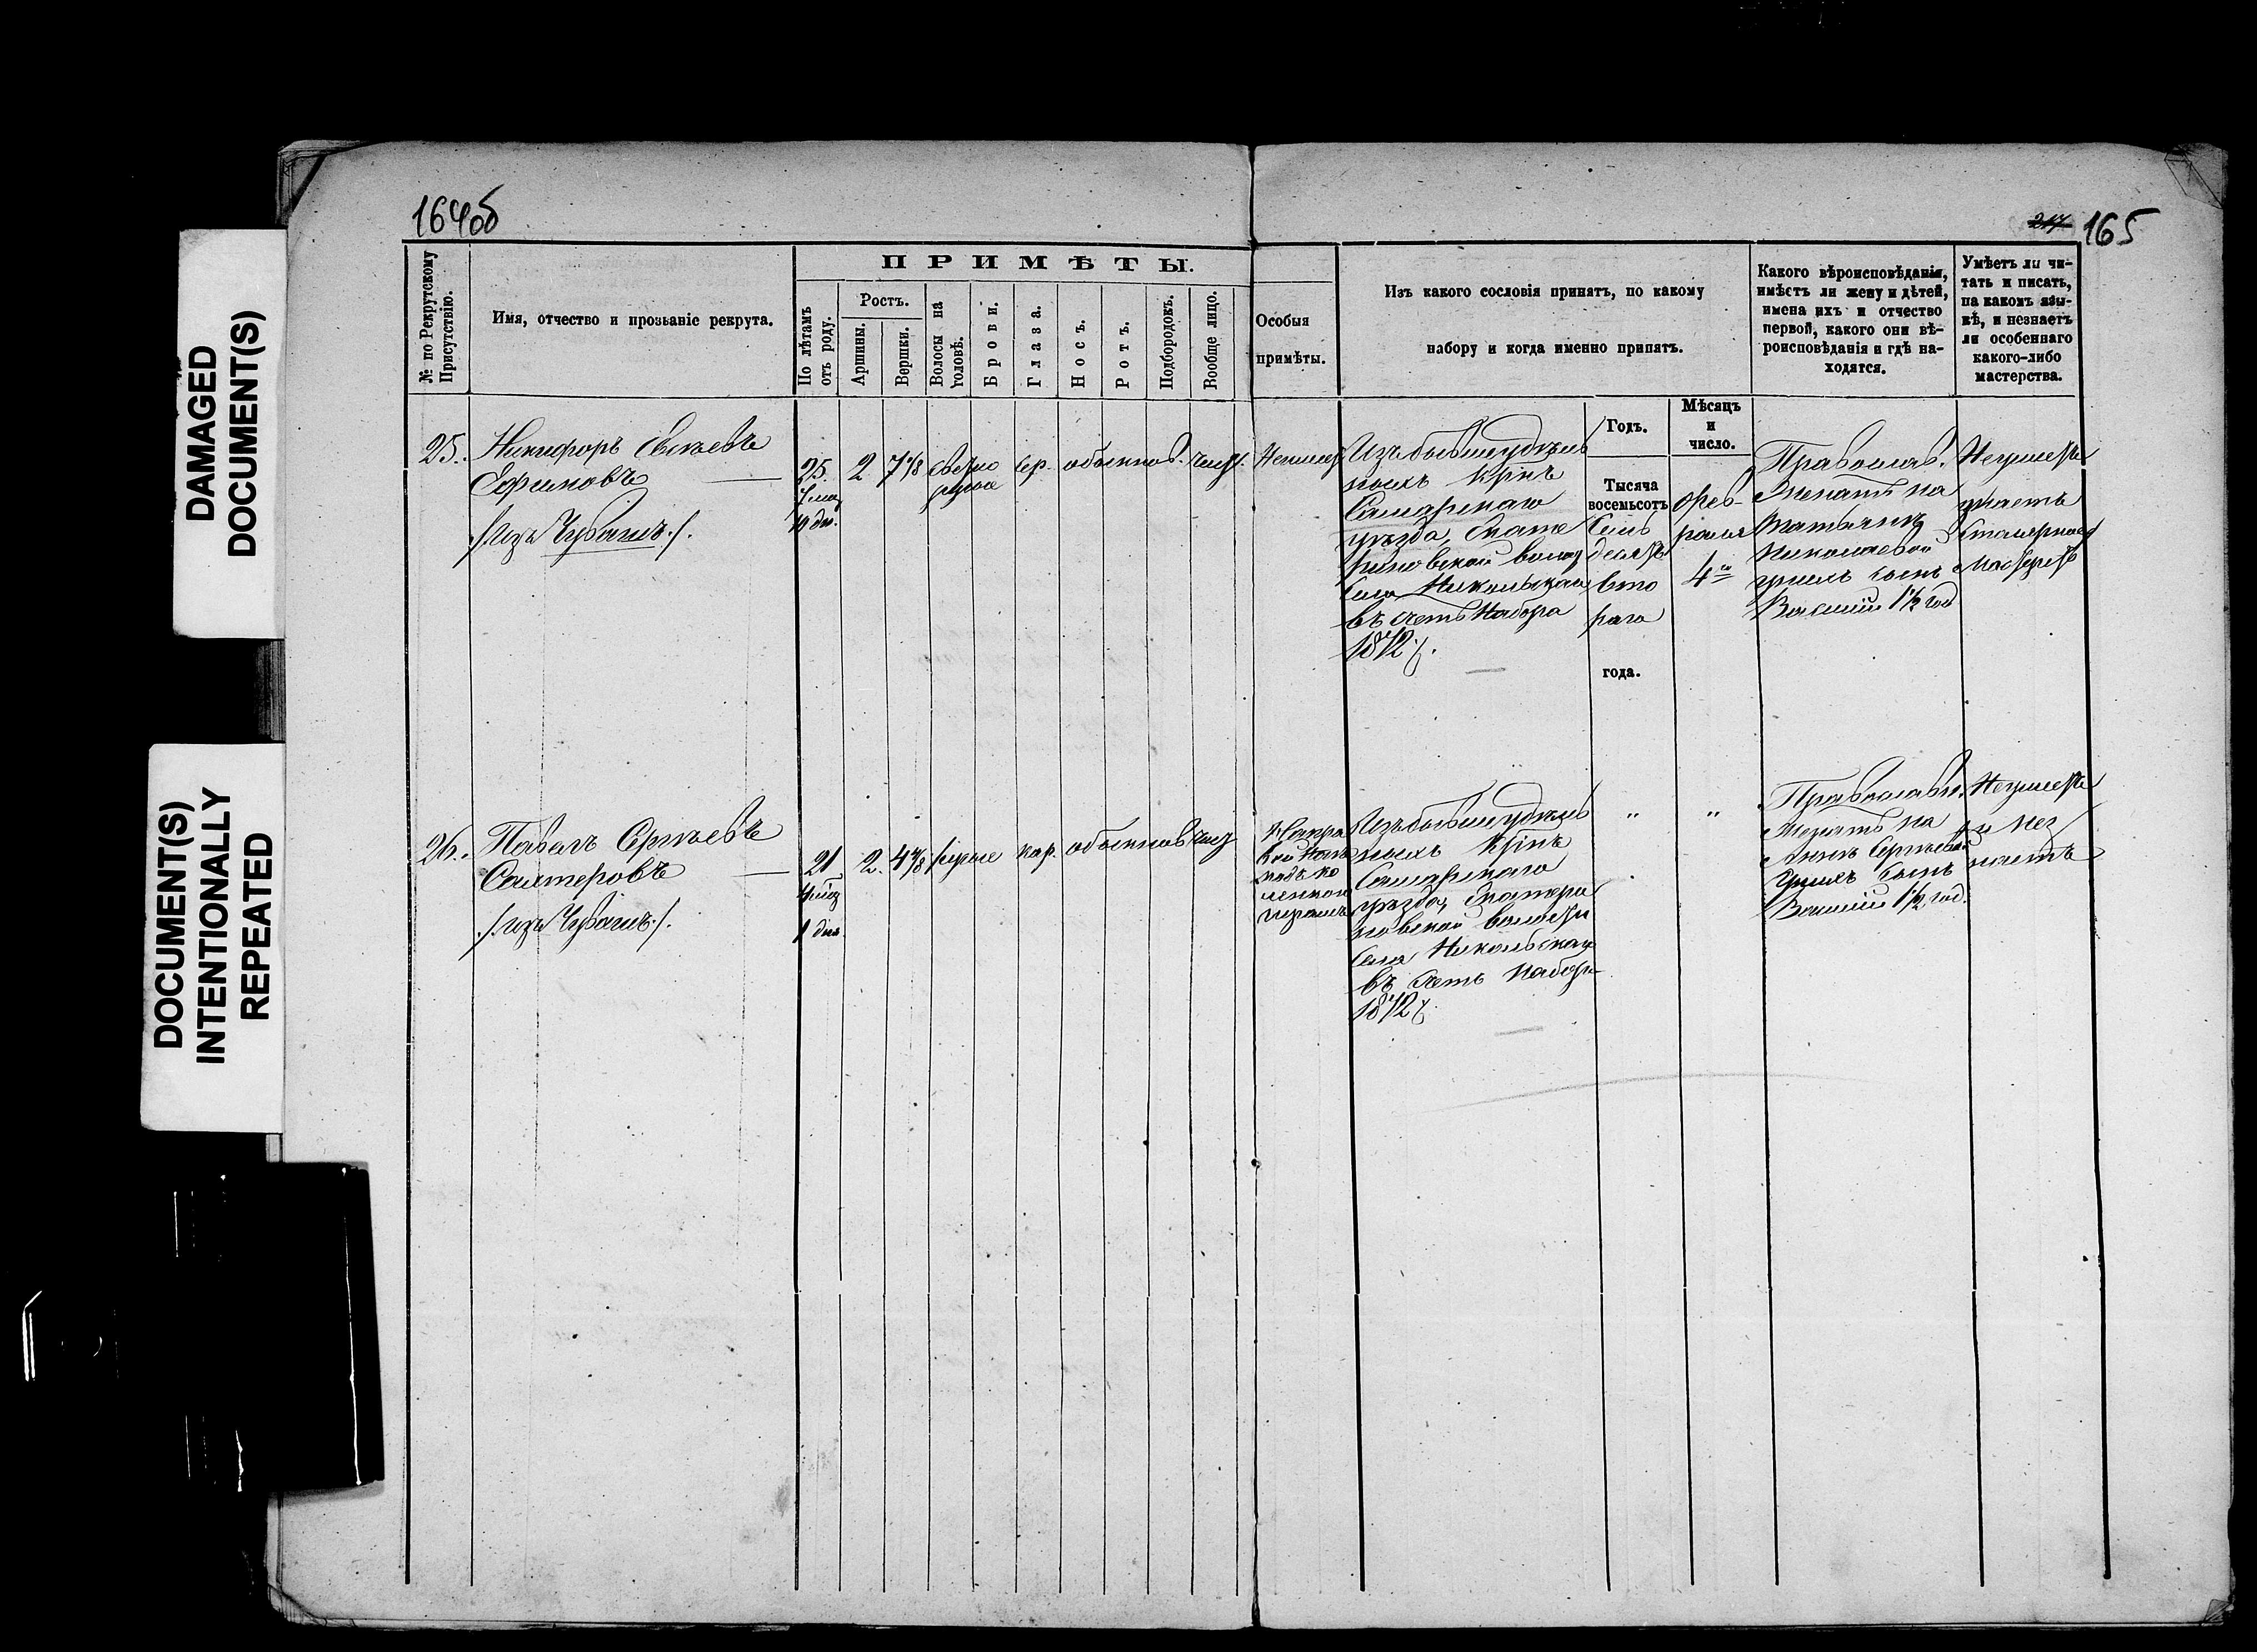 DAMAGED
DOCUMENT(S)
DOCUMENT(S)
INTENTIONALLY
REPEATED
164об
217 165
№ по Рекрутскому Присутствію.
Имя, отчество и прозваніе рекрута.
ПРИМѢТЫ.
По лѣтамъ отъ роду.
Ростъ.
Аршины.
Вершки.
Волосы на головѣ.
Брови.
Глаза.
Носъ.
Ротъ.
Подбородокъ.
Вообще лицо.
Особыя
примѣты.
Изъ какого сословія принятъ, по какому
набору и когда именно принятъ.
Какого вѣроисповѣданія,
имѣетъ ли жену и дѣтей,
имена ихъ и отчество
первой, какого они вѣ-
роисповѣданія и гдѣ на-
ходятся.
Умѣетъ ли чи-
тать и писать,
на какомъ язы-
кѣ, и незнаетъ
ли особеннаго
какого-либо
мастерства.
Годъ.
Мѣсяцъ
и
число.
25.
Никифоръ Евсѣевъ
Ефимовъ
/изъ Чувашъ/.
25.
10 дн.
2
7 1/8
свѣтло
русые
сер.
обыкнов.
чист.
Изъ бывш удѣль
ныхъ кр‍інъ
Самарскаго
уѣзда, Екате
риновской волос
села Никольскаго
въ счетъ набора
1872 г.
Тысяча
восемьсотъ
семь
десятъ
вто
раго
года.
фев-
раля
4го
Православ.
Женатъ на
Татьянѣ
Николаевой
у нихъ сынъ
Василій 1½ год
Неумѣетъ
знаетъ
столярное
мастерств
26.
Павелъ Сергѣевъ
Салтеровъ
/изъ Чувашъ/.
21
1 дня.
2.
4 4/8
русые
кар.
обыкнов
чист
На пра
вой ногѣ
подъ ко
ленкой
шрамъ
Изъ бывш удѣль
ныхъ кр‍інъ
Самарскаго
уѣзда, Екатери
новской волости
села Никольскаго
въ счетъ набора
1872 г.
" "
Православн.
Женатъ на
Аннѣ Сергѣевой
У нихъ сынъ
Василій 1½ год.
Неумѣетъ
и нез
наетъ